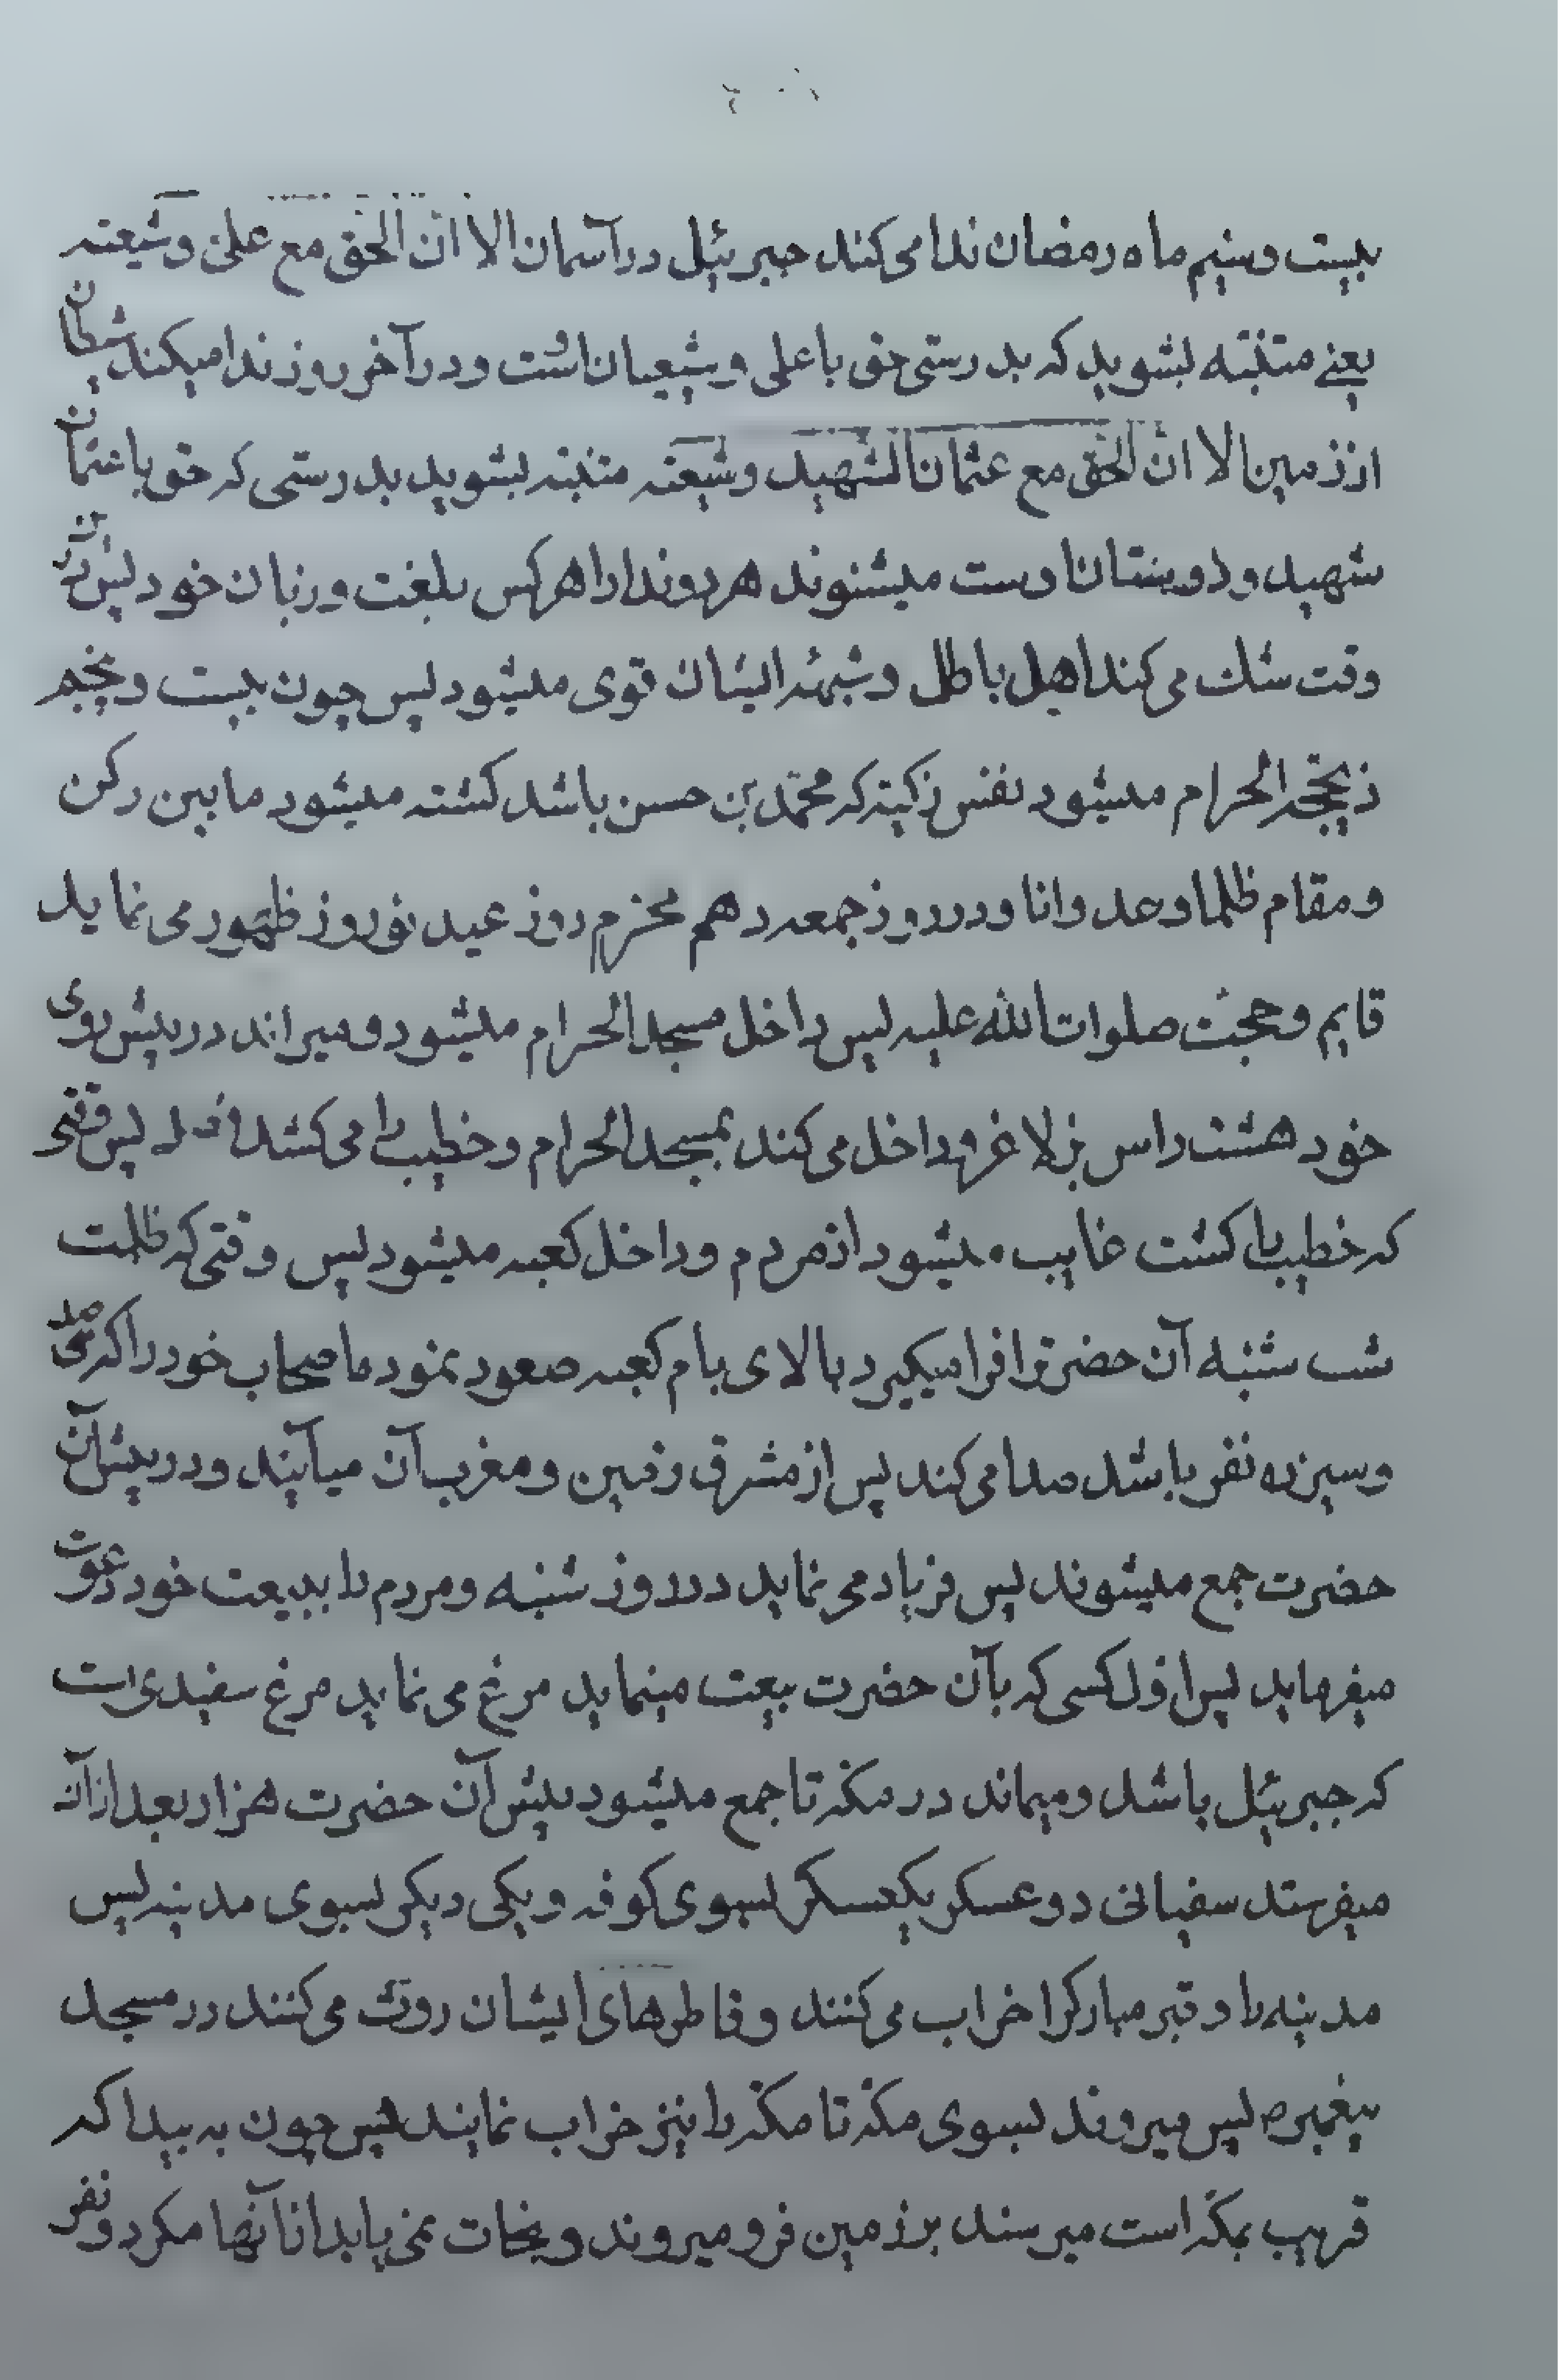 بیست وسیم ماه رمضان ندا می کند جبرئیل در آسمان الا ان الحق مع علی وشیعته
یعنے متنبّه بشوید که بدرستی حق با علی وشیعیان اوست ودر آخر روز ندا میکند شیطان
از زمین الا ان الحق مع عثمان الشهید وشیعته متنبه بشوید بدرستی که حق با عثمان
شهید ودوستان اوست میشنوند هر دو ندا را هر کس بلغت وزبان خود پس در آن
وقت شك می کند اهل باطل وشبهۀ ایشان قوی میشود پس چون بیست وپنجم
ذیحجه الحرام میشود نفس زکیّه که محمّد بن حسن باشد کشته میشود مابین رکن
ومقام ظلما وعدوانا ودر روز جمعه دهم محرّم روز عید نوروز ظهور می نماید
قایم وحجّت صلوات الله علیه پس داخل مسجد الحرام میشود ومیراند در پیش روی
خود هشت راس بز لاغر وداخل می کند بمسجد الحرام وخطیب را می کشد پس وقتی
که خطیب را کشت غایب میشود از مردم وداخل کعبه میشود پس وقتی که ظلمت
شب شنبه آن حضرت را فرا میگیرد ببالای بام کعبه صعود نموده اصحاب خود را که سیصد
وسیزده نفر باشد صدا می کند پس از مشرق زمین ومغرب آن میآیند ودر پیش آن
حضرت جمع میشوند پس فریاد می نماید در روز شنبه ومردم را ببیعت خود دعوت
میفرماید پس اوّل کسی که بآن حضرت بیعت مینماید مرغ می نماید مرغ سفیدی است
که جبرئیل باشد ومیماند در مکّه تا جمع میشود پیش آن حضرت هزار بعد از آن
میفرستد سفیانی دو عسکر یکعسکر بسوی کوفه ویکی دیگر بسوی مدینه پس
مدینه را وقبر مبارکرا خراب می کنند وقاطرهای ایشان روث می کنند در مسجد
پیغمبر ص پس میروند بسوی مکّه تا مکّه را نیز خراب نمایند پس چون به بیدا که
قریب بمکّه است میرسند بر زمین فرو میروند ونجات نمی یابد از آنها مکر دو نفر